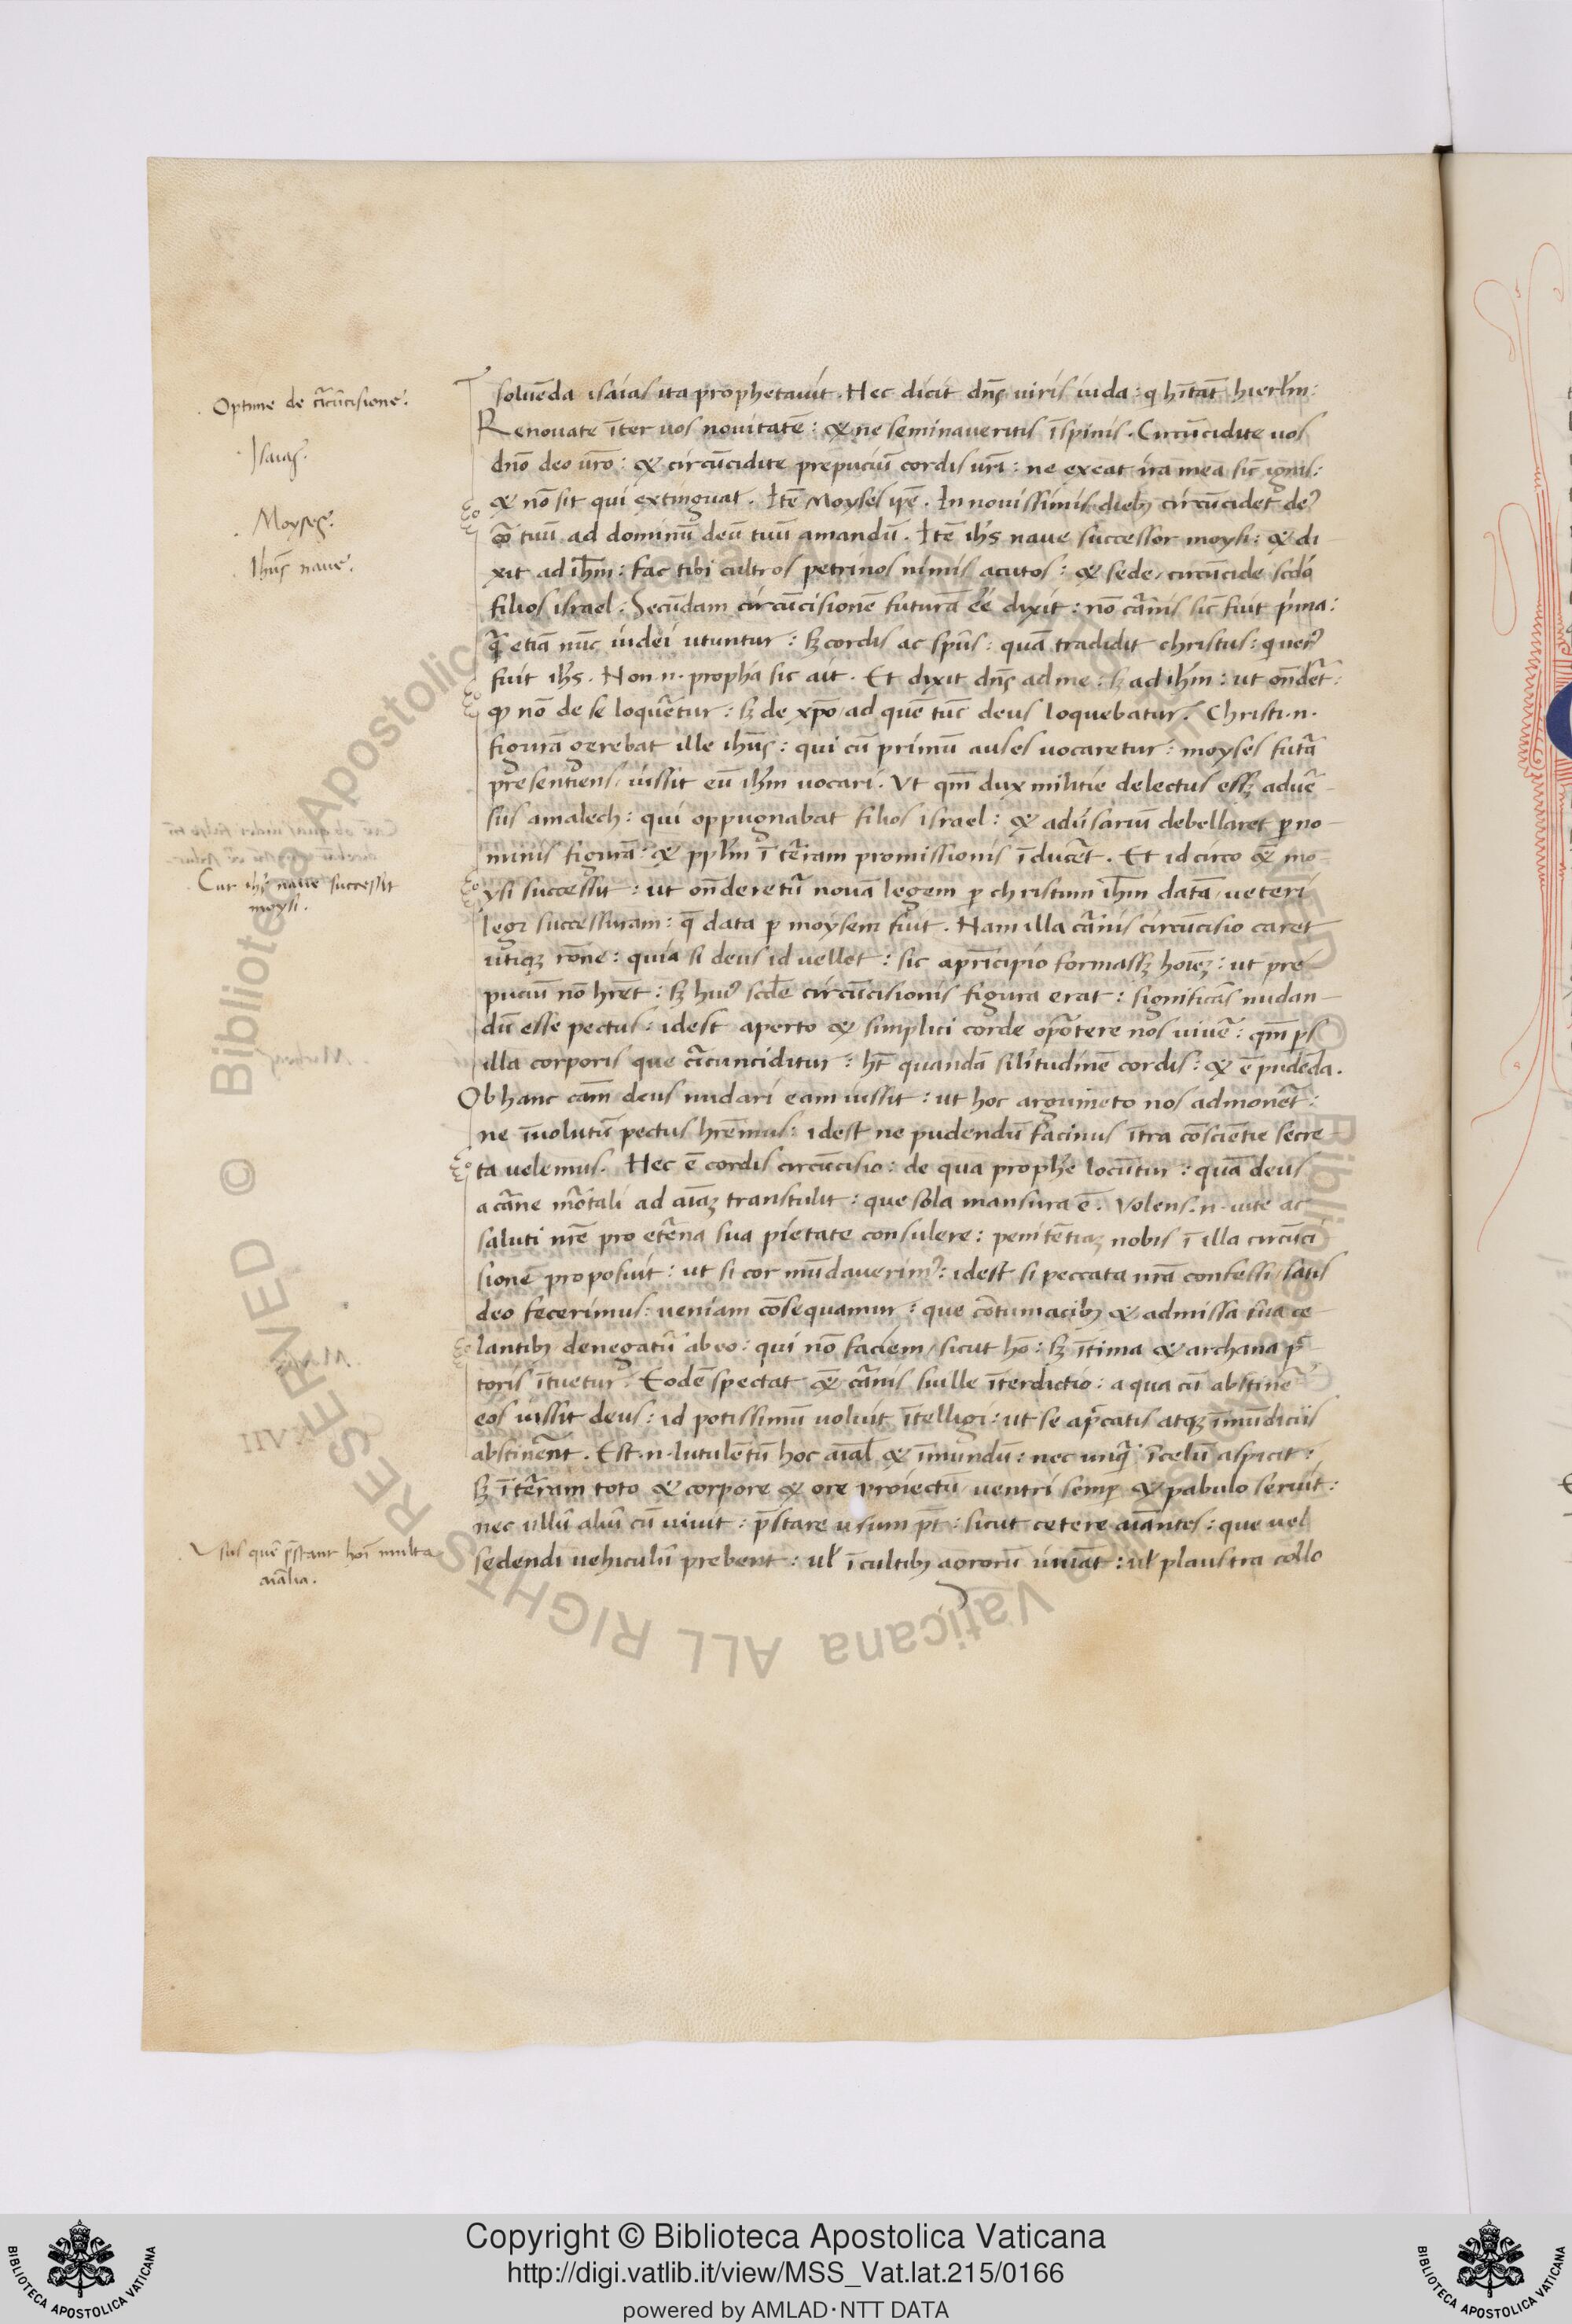 Optime de cr̄cūcisione.
Isaias.
Moyses.
Ihūs nave.
Cur ihs̄ nave successit
moysi.
Usus quē p̄stant hoī multa
aīalia.
solvēda isaias ita prophetavit. Hec dicit dn̄s viris iuda: q hītāt hierl̄m:
Renovate īter vos novitatē: & ne seminaveritis ī spinis. Circūcidite vos
dn̄o deo vr̄o: & circūcidite prepuciū cordis vr̄i: ne exeat ira mea sic̄ ignis:
& nō sit qui extinguat. Itē Moyses ip̄e. In novissimis dieb; circūcidet deꝰ
cor̄ tuū ad dominū deū tuū amandū. Itē ih̄s nave successor moysi: & di
xit ad ih̄m: fac tibi cultros petrinos nimis acutos: & sede, circūcide scd̄o
filios israel. Secūdam circūcisionē futurā ēe dixit: nō cār̄nis sic̄ fuit p̄ma:
q̄ etiā nūc iudei utuntur: sꝫ cordis ac sp̄us: quā tradidit christus: q verꝰ
fuit ih̄s. Non.n.propha sic ait. Et dixit dn̄s ad me: sꝫ ad ih̄m: ut on̄det̄:
qꝫ nō de se loquēretur: sꝫ de xp̄o, ad quē tūc deus loquebatur. Christi.n.
figurā gerebat ille ihūs: qui cū primū auses vocaretur: moyses futr̄a
presentiens, iussit eū ih̄m vocari. Ut qm̄ dux militie delectus essꝫ advē
sus amalech: qui oppugnabat filios israel: & adv̄sariū debellaret p no
minis figurā: & ppl̄m ī tēram promissionis īducet̄. Et idcirco &̄ mo
ysi successit: ut on̄deretū novā legem p christum ih̄m datā, veteri
legi successuram: q̄ data p moysem fuit. Nam illa cār̄nis circūcisio caret
utiqꝫ rōne: quia si deus id vellet: sic a prīcipio formassꝫ hoīeꝫ: ut pre
puciū nō hr̄et: sꝫ huiꝰ scd̄e circūcisionis figura erat: significās nudan-
dū esse pectus: idest aperto & simplici corde opor̄tere nos vivē: qm̄ ps
illa corporis que cir̄cunciditur: ht̄ quandā sil̄itudinē cordis: & ē pudēda.
Ob hanc cām deus nudari eam iussit: ut hoc argumēto nos admonet̄:
ne īvolutū pectus hr̄emus: idest ne pudendū facinus ītra cōsciētie secre
ta velemus. Hec ē cordis circūcisio: de qua prophe locūtur: quā deus
a cār̄ne mor̄tali ad aīaꝫ transtulit: que sola mansura ē. Volens.n.vite ac
saluti nr̄e pro etēna sua pietate consulere: penitētiaꝫ nobis ī illa circūci
sione proposuit: ut si cor mūdaverimꝰ: idest si peccata nr̄a confessi, satis
deo fecerimus: veniam cōsequamur: que cōtumacib; & admissa sua ce
lantib; denegatū ab eo: qui nō faciem, sicut hō: sꝫ ītima & archana p̄
toris ītuetur. Eodē spectat &̄ cār̄nis suille īterdictio: a qua cū abstinē
eos iussit deus: id potissimū voluit ītelligi: ut se a p̄catis atqꝫ īmūdiciis
abstinēr̄ent. Est.n.lutulētū hoc aīal & īmundū: nec unq̄ ī celū aspicit:
sꝫ ī tēram toto & corpore & ore proiectū ventri semp & pabulo servit:
nec ullū aliū cū vivit: p̄stare usum pt̄: sicut cetere aiāntes: que vel
sedendi vehiculū prebent: ul̄ ī cultib; agrorū iuvāt: ul̄ plaustra collo
© Biblioteca Apostolica Vaticana ALL RIGHTS RESERVED
Copyright © Biblioteca Apostolica Vaticana
http://digi.vatlib.it/view/MSS_Vat.lat.215/0166
powered by AMLAD·NTT DATA
BIBLIOTECA APOSTOLICA VATICANA
BIBLIOTECA APOSTOLICA VATICANA